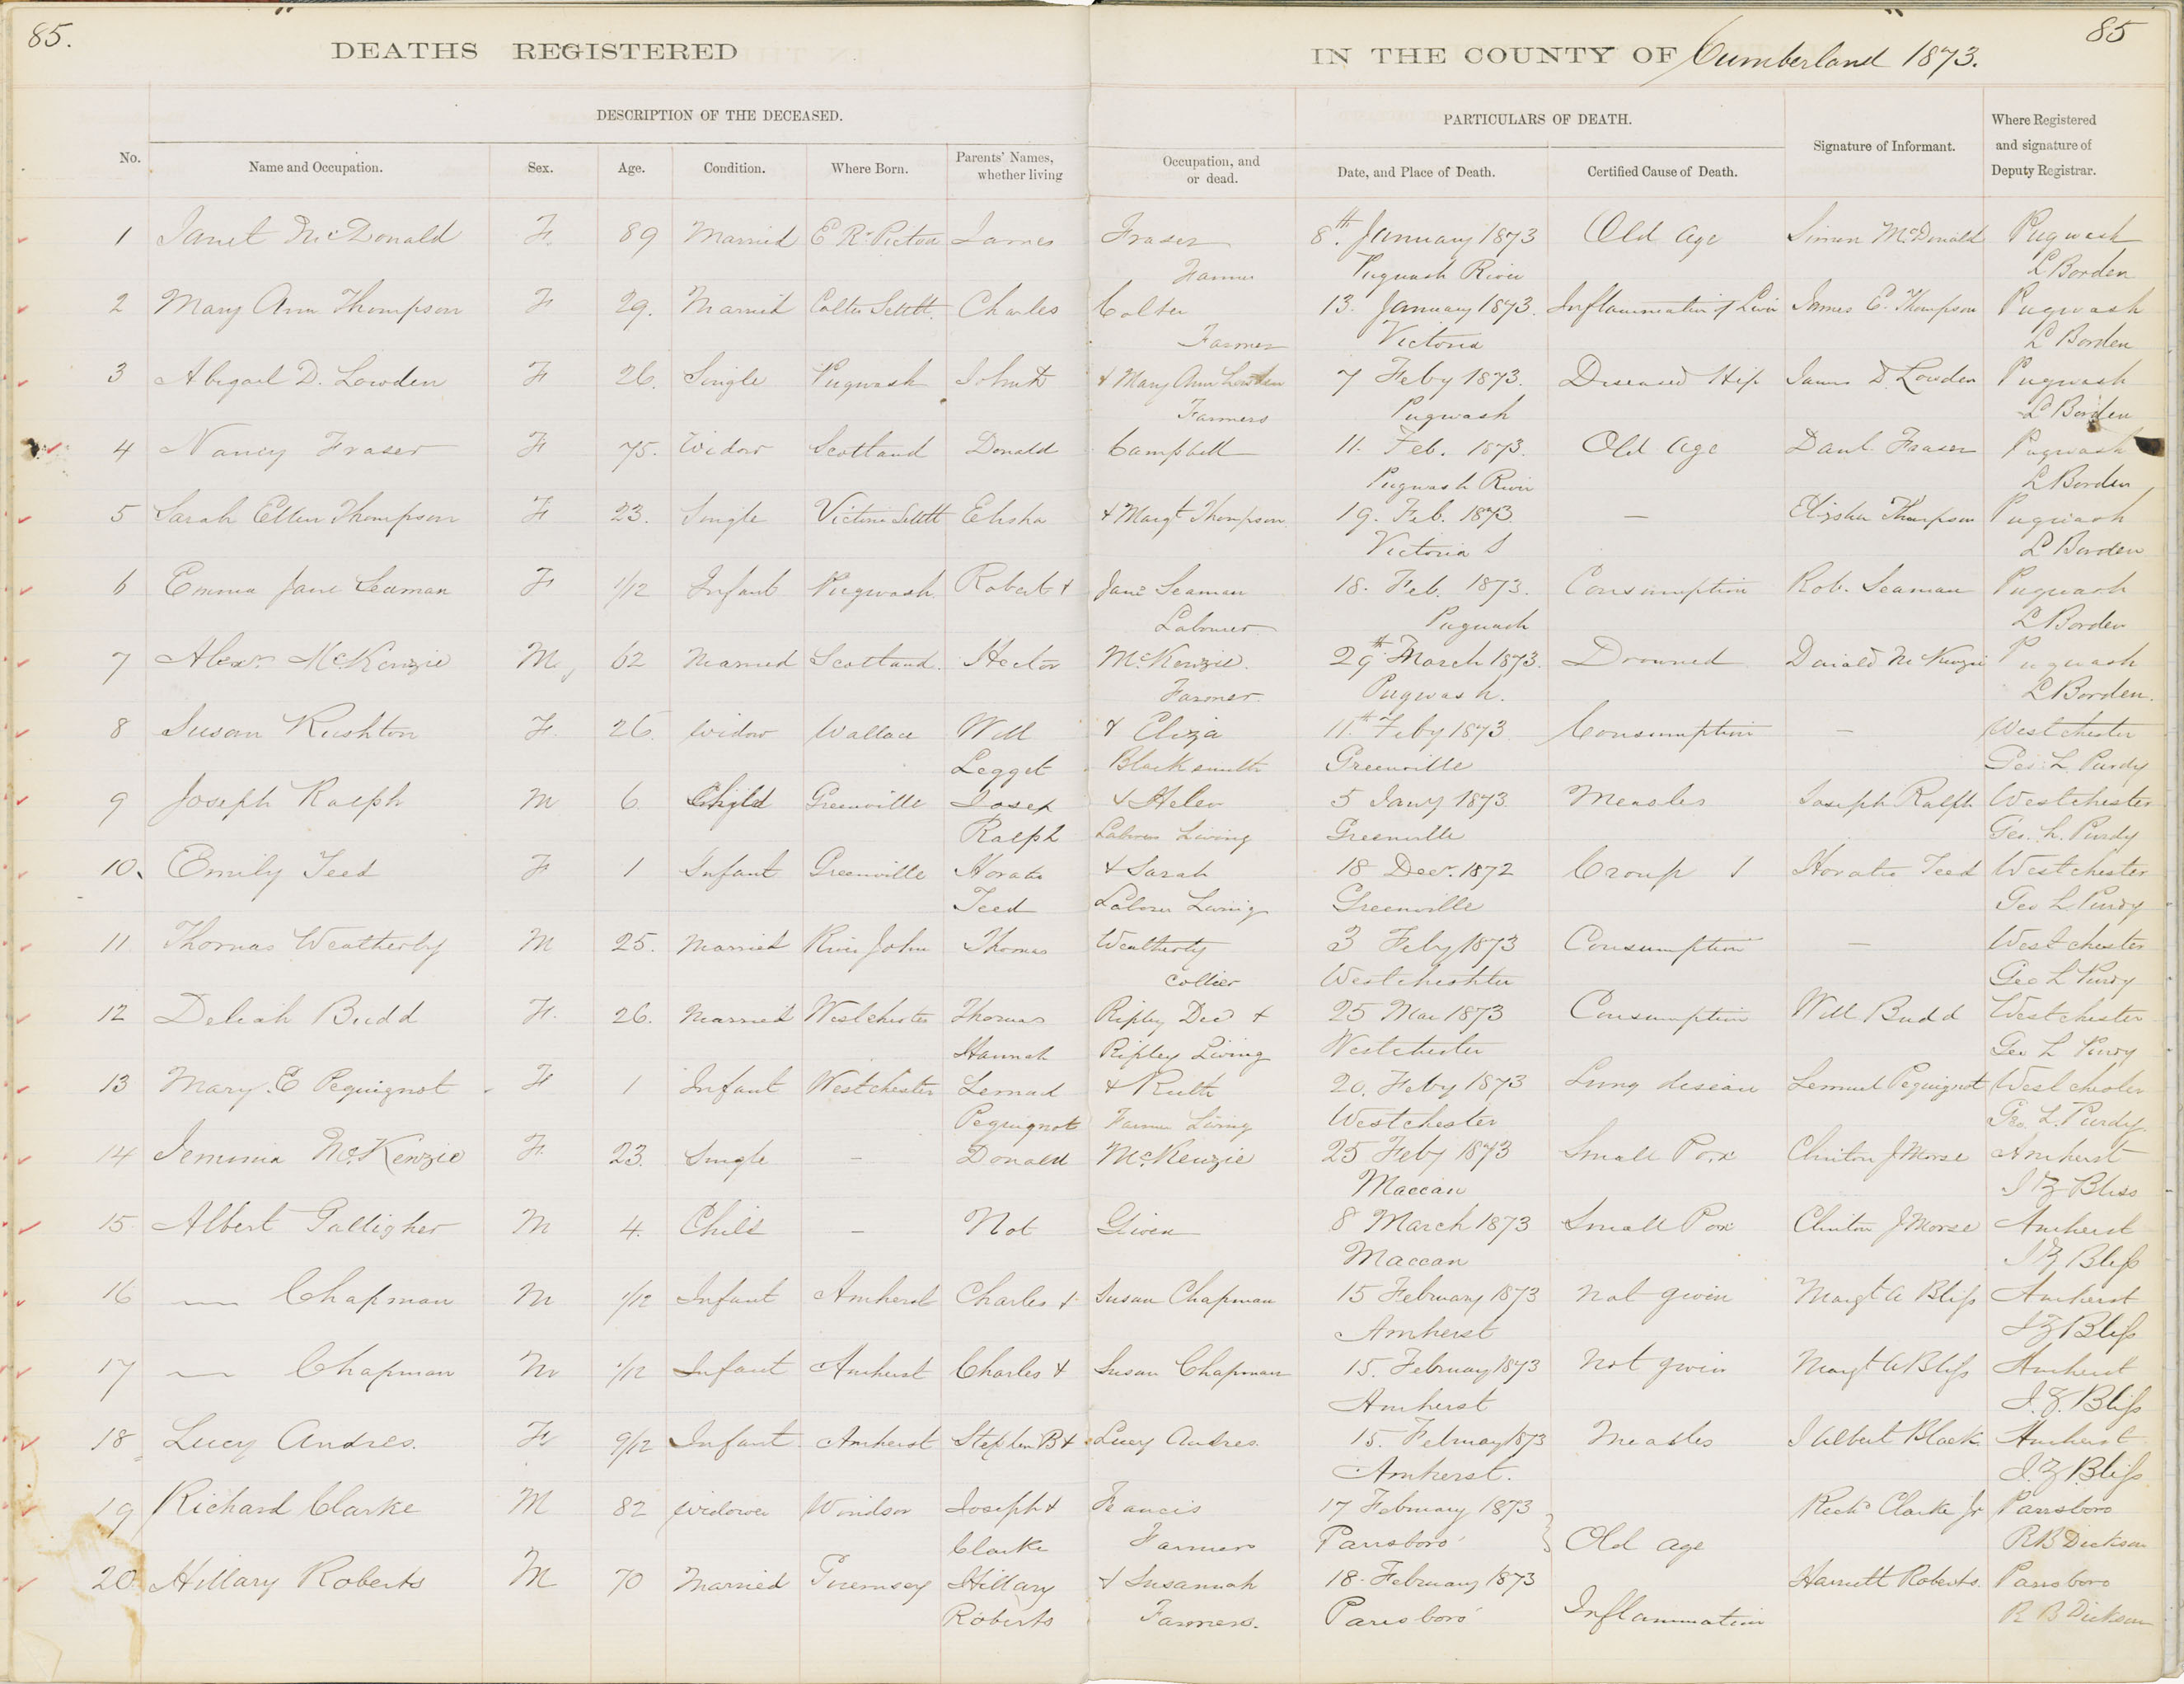 85.
DEATHS REGISTERED IN THE COUNTY OF Cumberland 1873.
85
DESCRIPTION OF THE DECEASED. PARTICULARS OF DEATH.
No. Name and Occupation. Sex. Age. Condition. Where Born. Parents' Names, whether living Occupation, and or dead. Date, and Place of Death. Certified Cause of Death. Signature of Informant. Where Registered and signature of Deputy Registrar.
1 Janet McDonald F. 89 Married E Rr Pictou James Fraser 8th. January 1873 Old Age Simon McDonald Pugwash
Farmer Pugwash River L Borden
2 Mary Ann Thompson F 29. Married Colter Settlt. Charles Colter 13. January 1873. Inflammation of Liver James C. Thompson Pugwash
Farmer Victoria L Borden
3 Abigail D. Lowden F 26. Single Pugwash John & Mary Ann Lowden 7 Feby 1873. Diseased Hip James D. Lowden Pugwash
Farmers Pugwash L Borden
4 Nancy Fraser F 75. Widow Scotland Donald Campbell 11. Feb. 1873. Old Age Danl. Fraser Pugwash
Pugwash River L Borden
5 Sarah Ellen Thompson F 23. Single Victoria Settlt Elisha & Margt Thompson 19. Feb. 1873 — Elisha Thompson Pugwash
Victoria S L Borden
6 Emma Jane Seaman F 1/12 Infant Pugwash Robert & Jane Seaman 18. Feb. 1873. Consumption Rob. Seaman Pugwash
Labourer Pugwash L Borden
7 Alexr. McKenzie M 62 Married Scotland. Hector McKenzie. 29th March 1873. Drowned Donald McKenzie Pugwash
Farmer Pugwash. L Borden.
8 Susan Rushton F. 26. Widow Wallace Will & Eliza 11th Feby 1873 Consumption — Westchester
Legget Blacksmith Greenville Geo. L. Purdy
9 Joseph Ralph M 6 Child Greenville Josep & Helen 5 Jany 1873 Measles Joseph Ralph Westchester
Ralph Laborer Living Greenville Geo. L. Purdy
10. Emily Teed F 1 Infant Greenville Horatio & Sarah 18 Decr. 1872 Croup Horatio Teed Westchester
Teed Laborer Living Greenville Geo L Purdy
11 Thomas Weatherby M 25. Married River John Thomas Weatherby 3 Feby 1873 Consumption — Westchester
Collier Westcheshter Geo L Purdy
12 Deliah Budd F. 26. Married Westchester Thomas Ripley Ded & 25 Mar 1873 Consumption Will Budd Westchester
Hannah Ripley Living Westchester Geo L Purdy
13 Mary. E Pequignot F 1 Infant Westchester Lemad & Ruth 20. Feby 1873 Lung disease Lemuel Pequignot Westchester
Pequignot Farmer Living Westchester Geo. L. Purdy.
14 Jemimia McKenzie F. 23. Single — Donald McKenzie 25 Feby 1873 Small Pox Clinton J Morse Amherst
Maccan J Z Bliss
15 Albert Galligher M 4. Child — Not Given 8 March 1873 Small Pox Clinton J Morse Amherst
Maccan J Z Bliss
16 — Chapman M 1/12 Infant Amherst Charles & Susan Chapman 15 February 1873 not given Margt A Bliss Amherst
Amherst J Z Bliss
17 — Chapman M 1/12 Infant Amherst Charles & Susan Chapman 15. February 1873 not given Margt A Bliss Amherst
Amherst J. Z. Bliss
18 Lucy Andres. F 9/12 Infant. Amherst Stephen B & Lucy Andres. 15. February 1873 Measles J Albert Black. Amherst
Amherst. J. Z Bliss
19 Richard Clarke M 82 Widower Windsor Joseph & Francis 17 February 1873 Old age Richd Clarke Jr Parrsboro
Clarke Farmers Parrsboro' R B Dickson
20 Hillary Roberts M 70 Married Guernsey Hillary & Susannah 18. February 1873 Inflammation Harriett Roberts. Parrsboro
Roberts Farmers. Parrsboro' R B Dickson